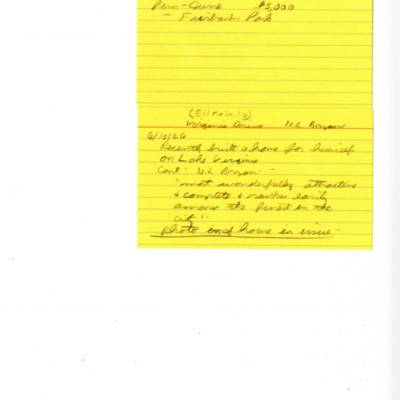 Penn-          $5,000
- Fairbanks Park
Virginia Drive   N.L. Bryan
6/10/26
Recently built a home for himself
on Lake Virginia
Cont: N.L. Bryan -
"most wonderfully attractive
& complete & ranks easily
among the finest in the
city".
photo of house in issue -